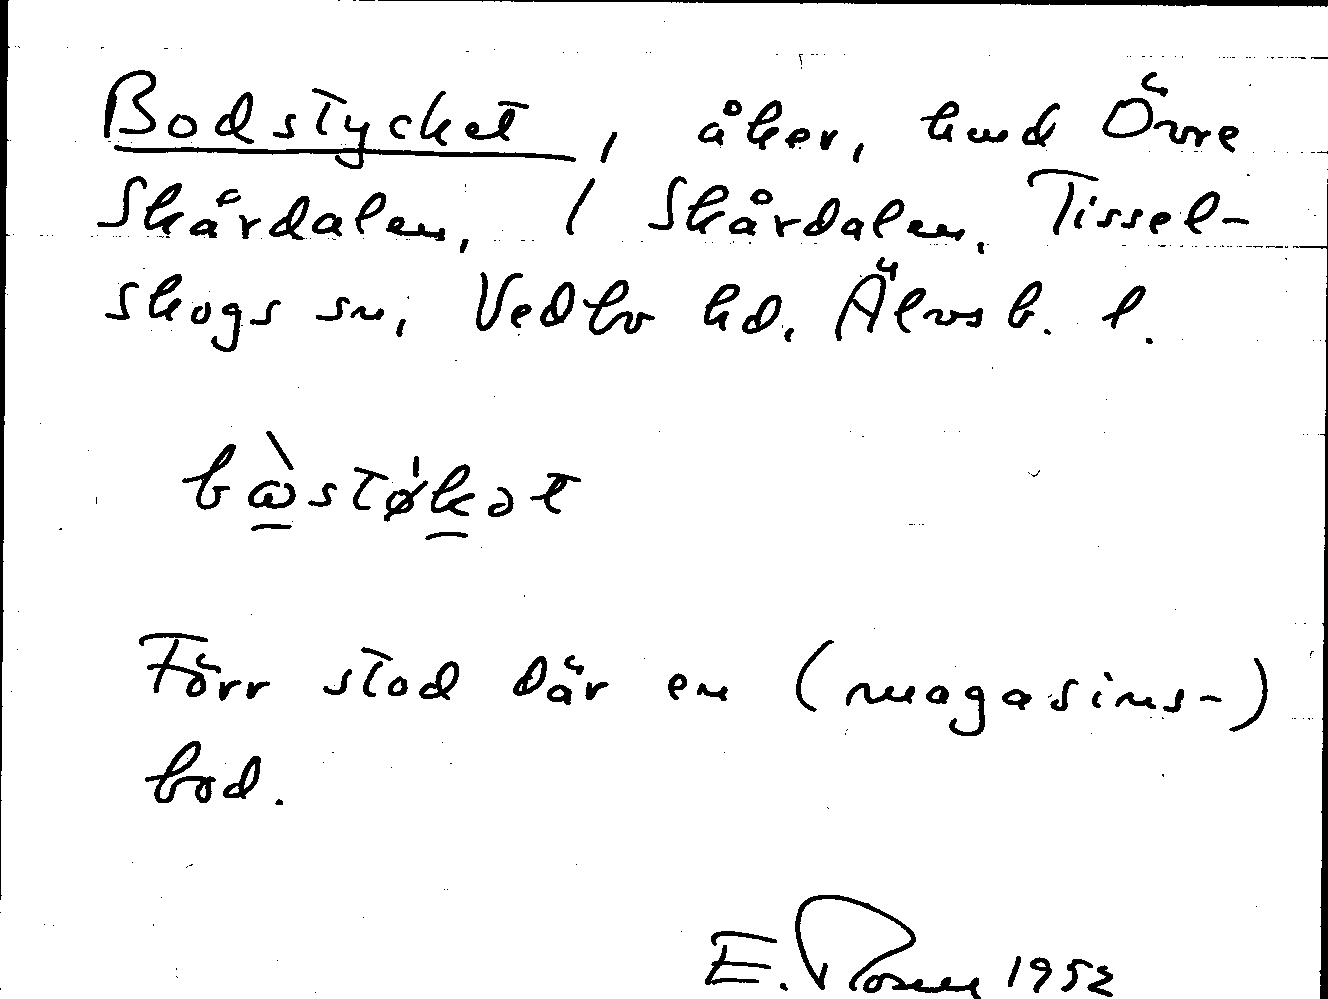 Bodstycket, åker, hmd Övre
Skårdalen, / Skårdalen, Tissel-
skogs sn, Vedbo hd. Älvsb. l.
bὼstǿkət
Förr stod där en (magasins-)
bod.
E. Rosell 1952